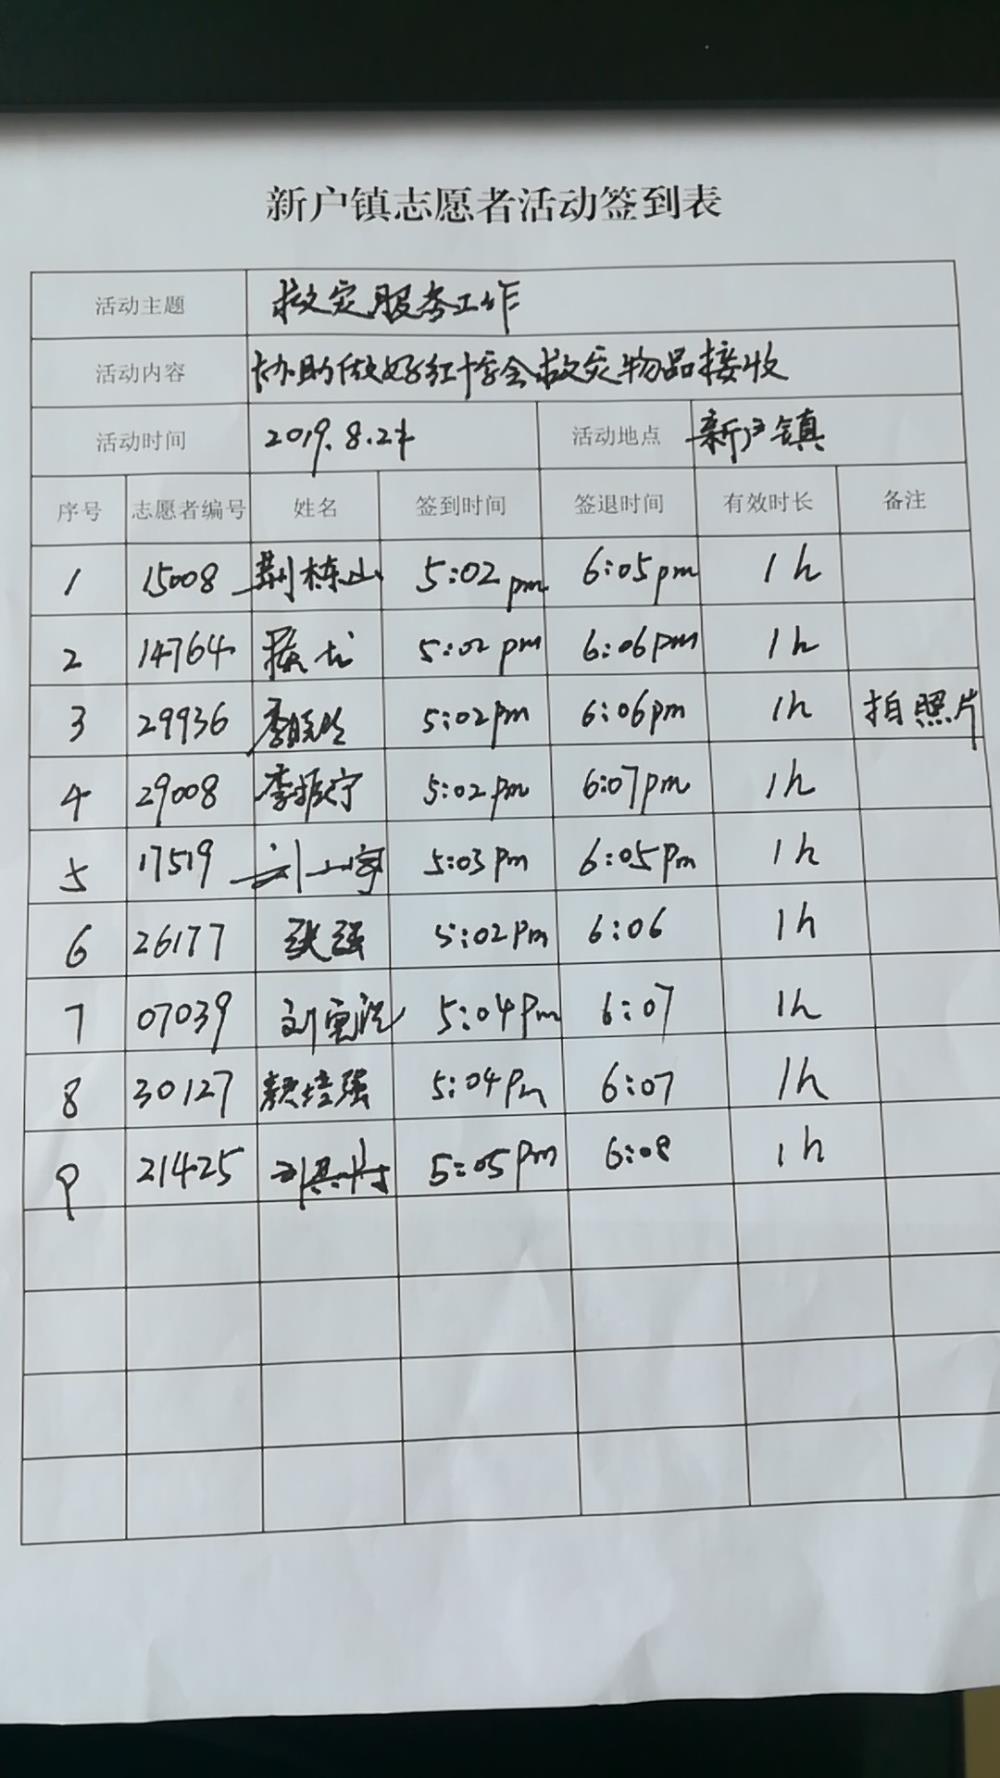 新户镇志愿者活动签到表
活动主题 救灾服务工作
活动内容 协助做好红十字会救灾物品接收
活动时间 2019.8.24 活动地点 新户镇
序号 志愿者编号 姓名 签到时间 签退时间 有效时长 备注
1 15008 荆栋山 5:02pm 6:05pm 1h
2 14764 5:02pm 6:06pm 1h
3 29936 5:02pm 6:06pm 1h 拍照片
4 29008 李振宁 5:02pm 6:07pm 1h
5 17519 5:03pm 6:05pm 1h
6 26177 张强 5:02pm 6:06 1h
7 07039 5:04pm 6:07 1h
8 30127 魏培强 5:04pm 6:07 1h
9 21425 5:05pm 6:08 1h